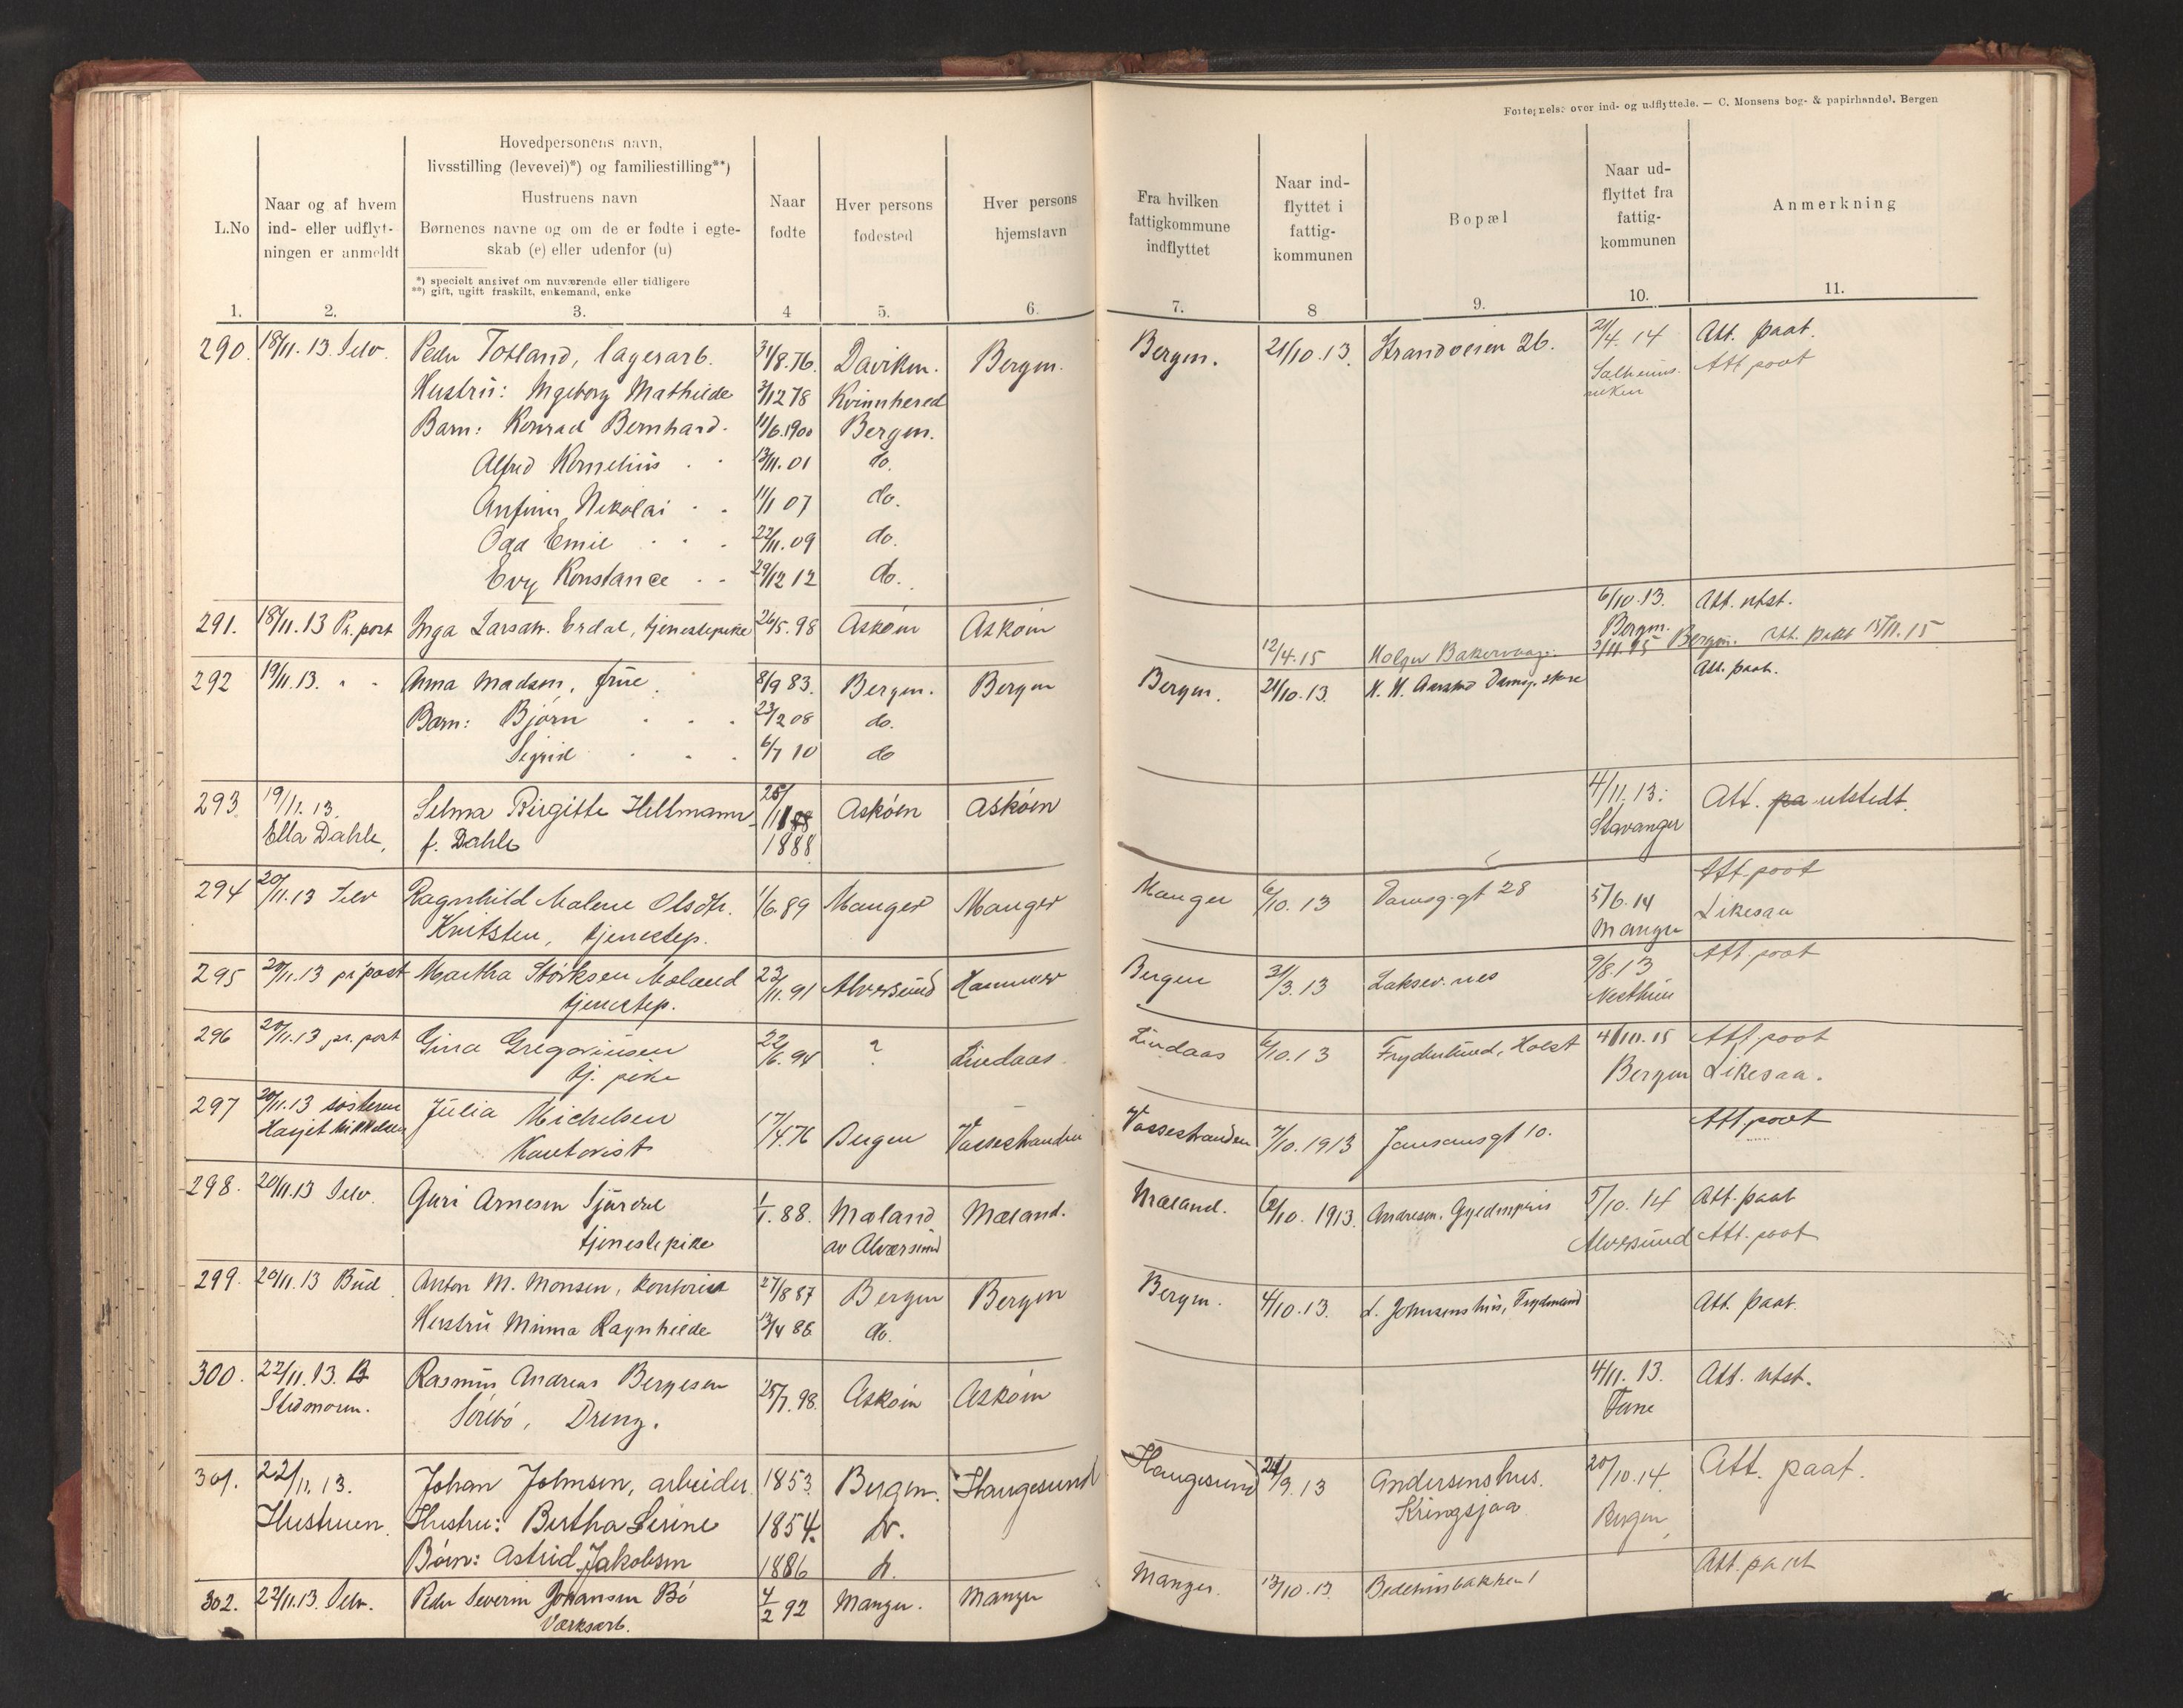 Fortegnelse over ind- og udflyttede. — C. Monsens bog- & papirhandel. Bergen
L.No
Naar og af hvem
ind- eller udflyt-
ningen er anmeldt
Hovedpersonens navn,
livsstilling (levevei)*) og familiestilling**)
Hustruens navn
Børnenes navne og om de er fødte i egte-
skab (e) eller udenfor (u)
*) specielt angivet om nuværende eller tidligere
**) gift, ugift fraskilt, enkemand, enke
Naar
fødte
Hver persons
fødested
Hver persons
hjemstavn
Fra hvilken
fattigkommune
indflyttet
Naar ind-
flyttet i
fattig-
kommunen
Bopæl
Naar ud-
flyttet fra
fattig-
kommunen
Anmerkning
1. 2. 3. 4 5. 6. 7. 8 9. 10. 11.
290. 18/11.13. Selv. Peder Totland, lagerarb. 31/8.76. Daviken. Bergen. Bergen. 21/10.13. Strandveien 26. 21/4.14 Att. paat.
Hustru: Ingeborg Mathilde 3/12 78 Kvinnhered Att poat
Barn: Konrad Bernhard. 11/6.1900 Bergen.
Alfred Kornelius 13/11.01 do.
Anfinn Nikolai 11/1 07 do.
Odd Emil 22/11.09 do.
Evy Konstance 29/12 12 do.
291. 18/11.13 Pr. post Inga Larsen Erdal, tjenestepike 26/5.98 Askøen Askøen 6/10.13. Att. utst.
Bergen.
12/4.15 Holger Bakervaag. 3/11.15 Bergen. Att. paat 15/11.15
292 19/11.13. " " Anna Madsen, frue 8/9 83. Bergen. Bergen Bergen. 21/10.13. Att. paat.
Barn: Bjørn 23/2 08 do.
Sigrid 6/7 10 do
293 19/11.13. Selma Birgitte Heltmann 25/11 88 Askøen Askøen 4/11.13. Att. pa utstedt.
Ella Dahle, f. Dahle 1888 Stavanger
294 20/11.13 Selv Ragnhild Malene Olsdtr. 1/6.89 Manger Manger Manger 6/10.13 Damsg.gt 28 5/6.14 Att. poat
Kvitsten, tjenestep. Manger Likesaa
295 20/11.13 pr post Martha Størksen Moland 23/11.91 Alversund Hammer Bergen 31/3.13 Laksev.nes 9/8.13 Att poat
tjenestep. Nesthun
296 20/11.13 pr. post Gina Gregoriusen 22/6.94 ? Lindaas Lindaas 6/10.13 Frydenlund, Holst 4/10.15 Att poat
tj. pike Bergen Likesaa.
297 20/11.13 søsteren Julia Michelsen 17/4.76 Bergen Vossestranden Vossestranden 7/10.1913 Jansonsgt 10. Att poat
Kontorist
298. 20/11.13 Selv. Guri Arnesen 1/1.88. Mæland Mæland. Mæland. 6/10.1913. 5/10.14 Att. paat
tjenestepike av Alversund Alversund Att. poat
299. 20/11.13 Bud Anton M. Monsen, kontorist 27/8 87 Bergen Bergen Bergen. 4/10.13. L. Johnsens hus, Att. paat.
Hustru Minna Ragnhilde 13/4 86 do.
300. 22/11.13. Rasmus Andreas Bergesen 25/7.98. Askøen Askøen 4/11.13. Att. utst.
Stedmoren. Dreng. Fane
301. 22/11.13. Johan Johnsen, arbeider. 1853. Bergen. Haugesund Haugesund 24/9.13 Andersens hus. 20/10.14. Att. paat.
Hustruen. Hustru: Bertha Serine 1854. do. Kringsjaa Bergen
Børn: Astrid Jakobsen 1886 do.
302. 22/11.13. Selv. Peder Severin Johansen Bø 4/2 92 Manger. Manger Manger. 13/10.13 Bedehusbakken 1 Att. paat
Værksarb.